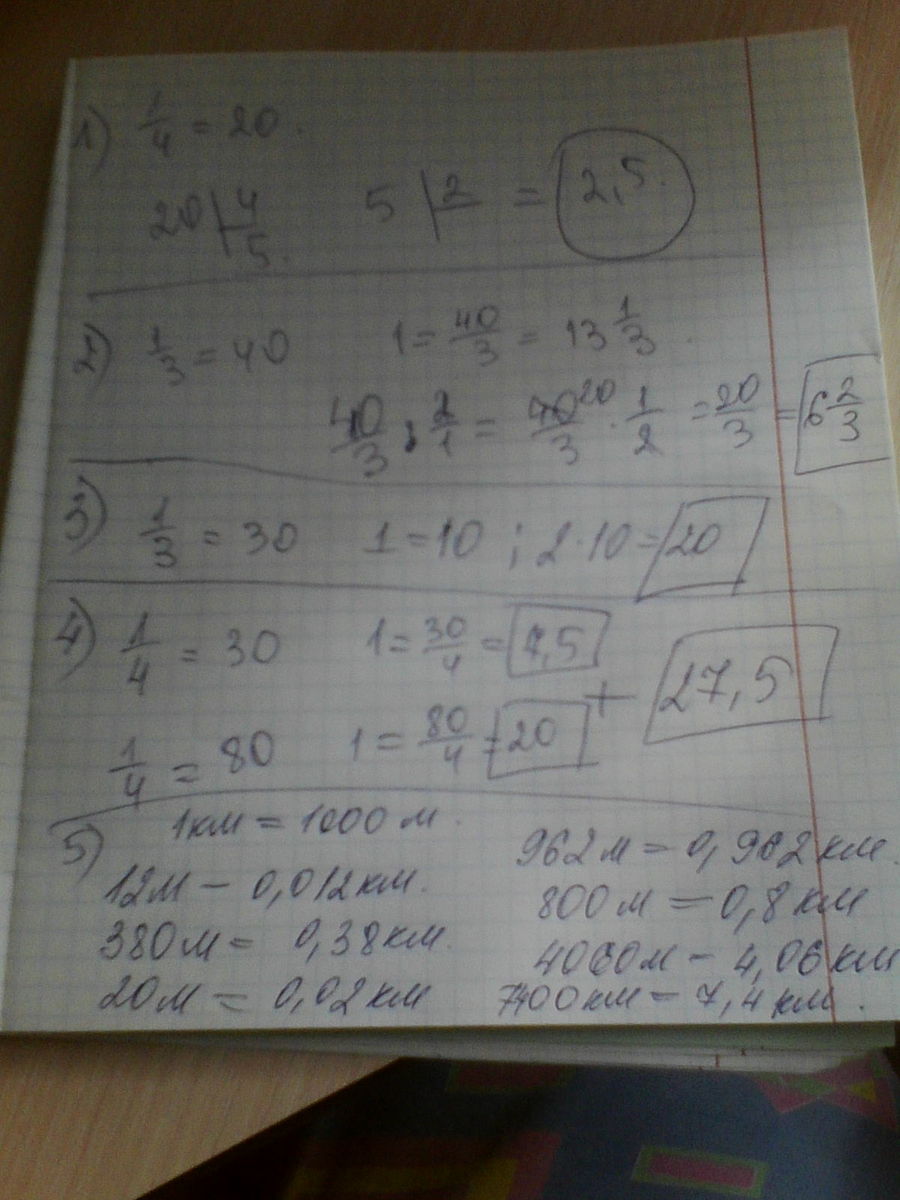 1) 1/4 = 20.
20 | 4 5. 5 | 2 = 2,5.
2) 1/3 = 40 1 = 40/3 = 13 1/3.
40/3 : 2/1 = 40/3 20 · 1/2 = 20/3 = 6 2/3
3) 1/3 = 30 1 = 10 ; 2 · 10 = 20
4) 1/4 = 30 1 = 30/4 = 7,5
+ 27,5
1/4 = 80 1 = 80/4 = 20
5) 1км = 1000 м.
12м – 0,012км.
380м = 0,38км.
20м = 0,02км
962м = 0,962км.
800м = 0,8км
4060м – 4,06км
7400км = 7,4км.